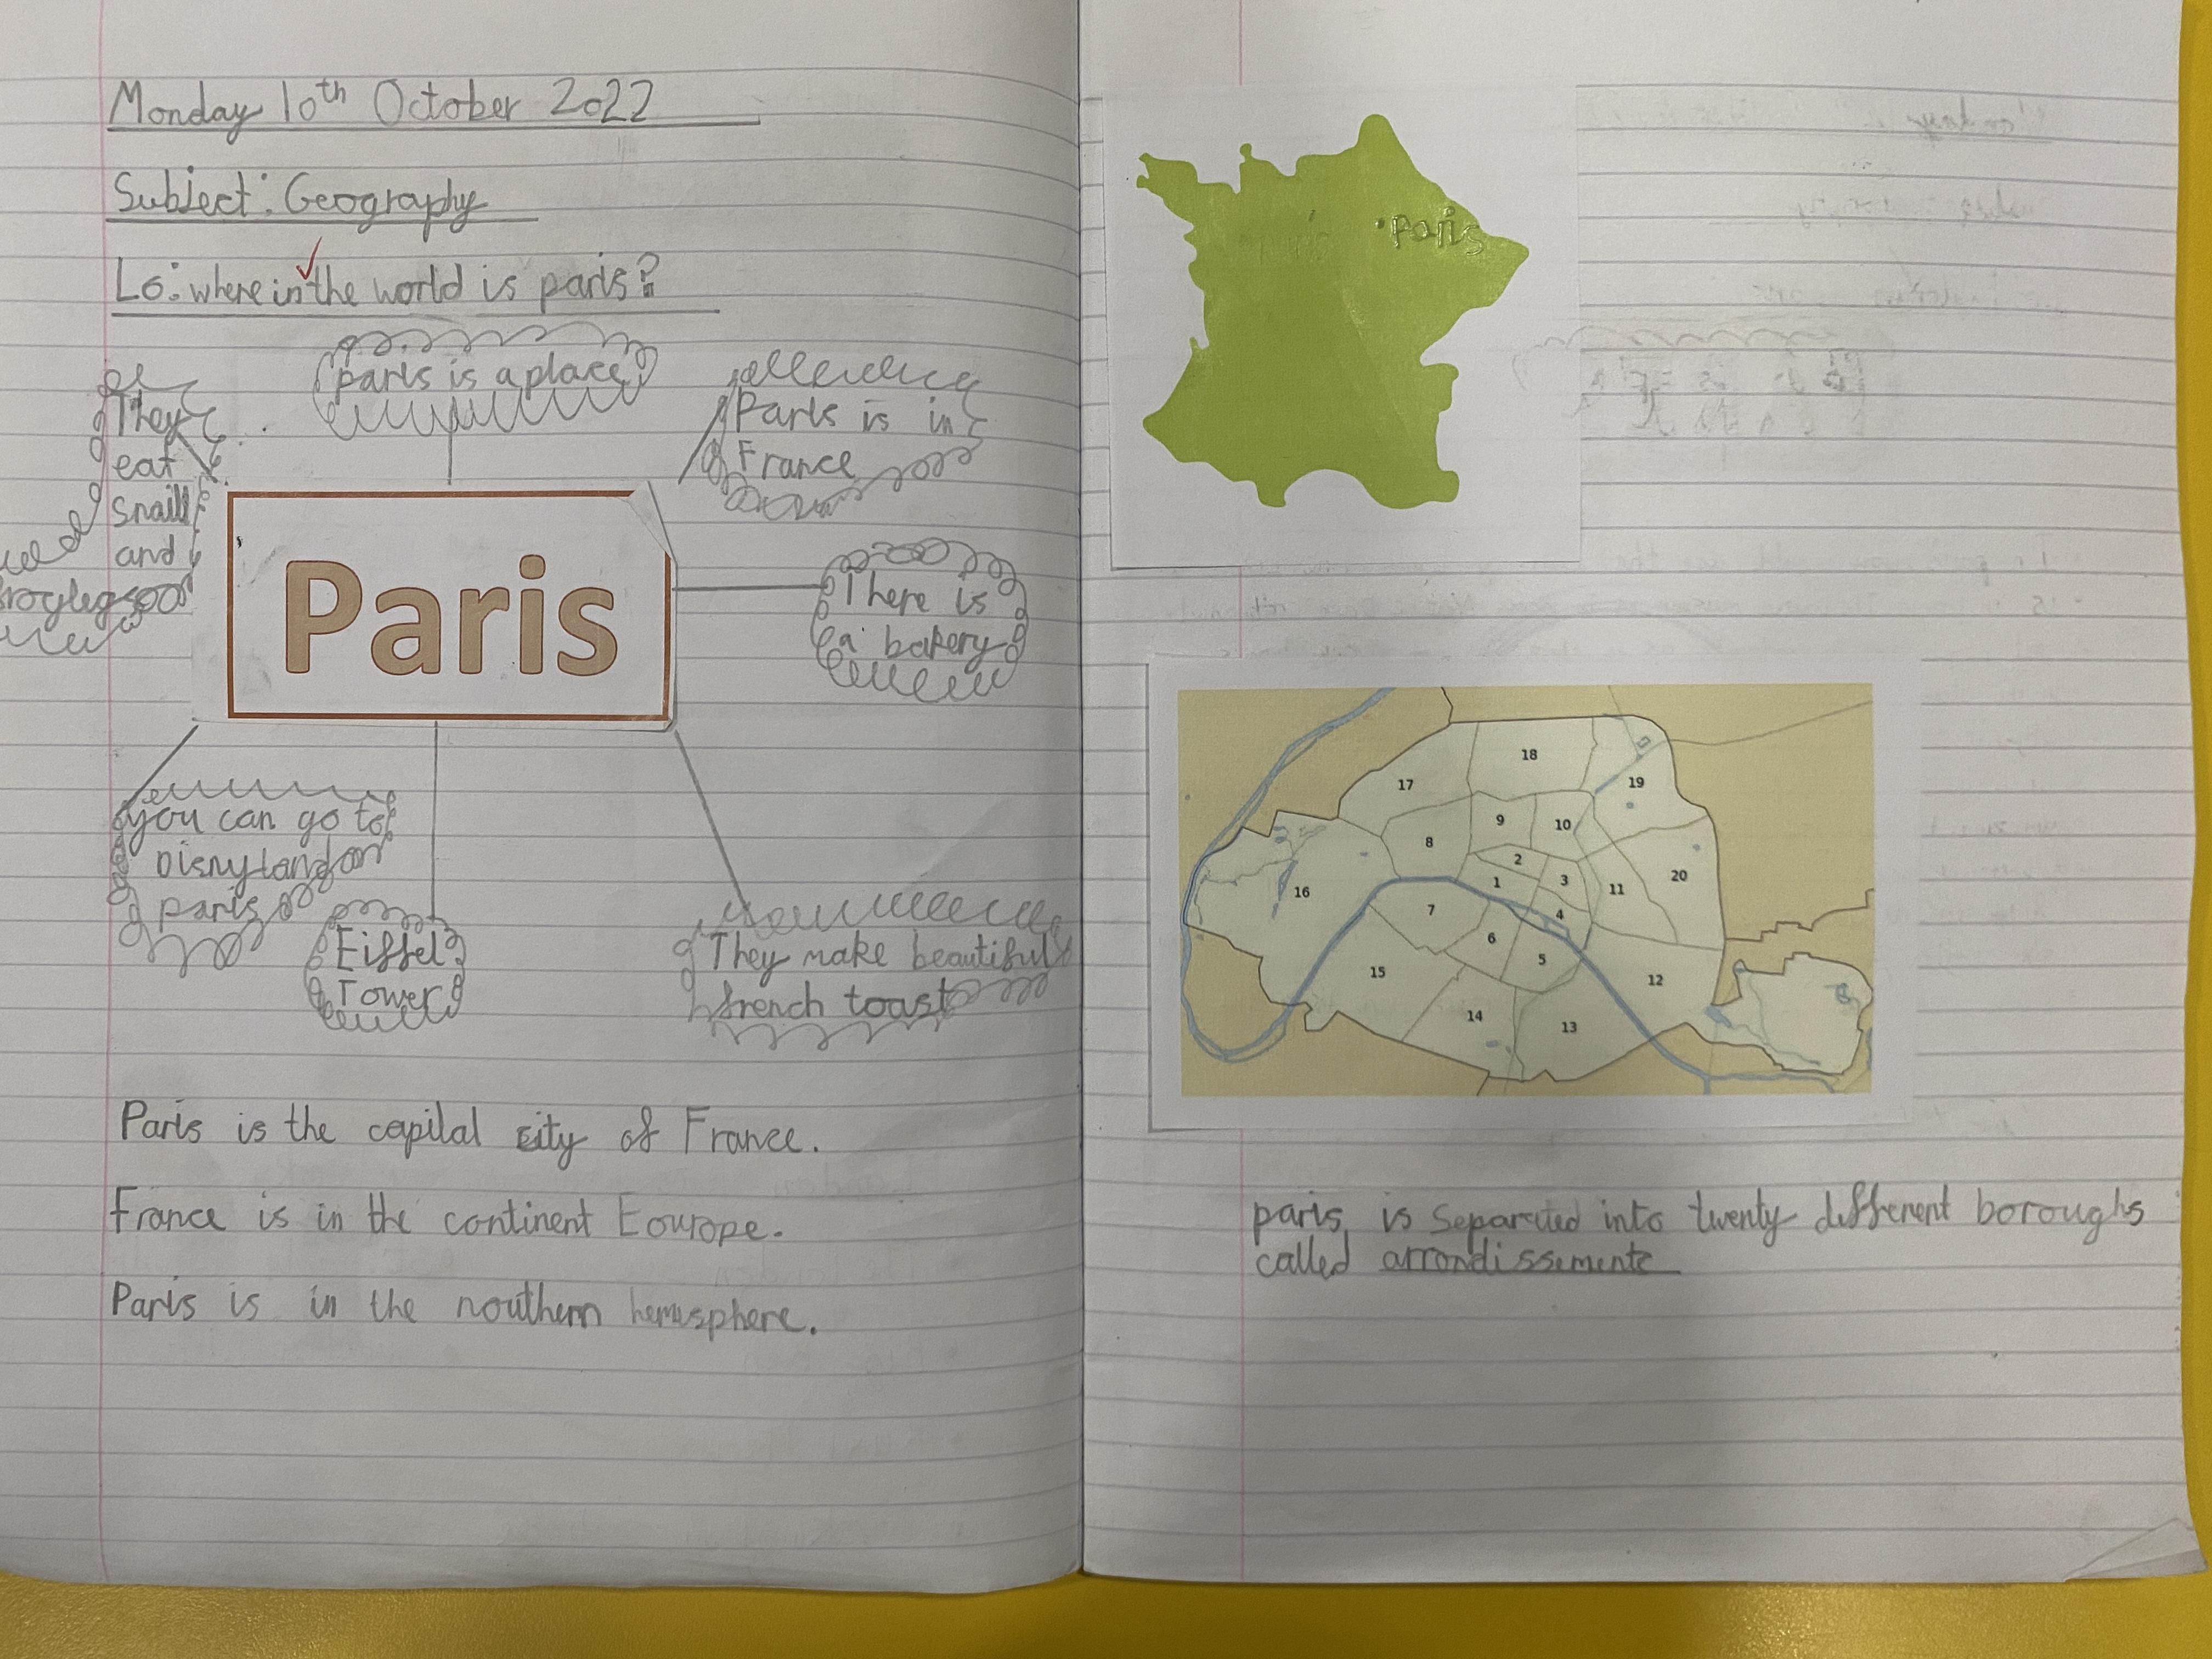 Monday 10th October 2022
Subject: Geography
Lo: where in the world is paris?
paris is a place
They
eat
snaill
and
froglegs
Paris is in
France
Paris
There is
a bakery
you can go to
Disnyland
paris
Eiffel
Tower
They make beautiful
french toast
Paris is the capital city of France.
France is in the continent Eourope.
Paris is in the nouthern hemisphere.
Paris
18
17
19
9
10
8
2
20
3
1
11
16
4
7
6
5
15
12
14
13
paris is separated into twenty different boroughs
called arrondissements